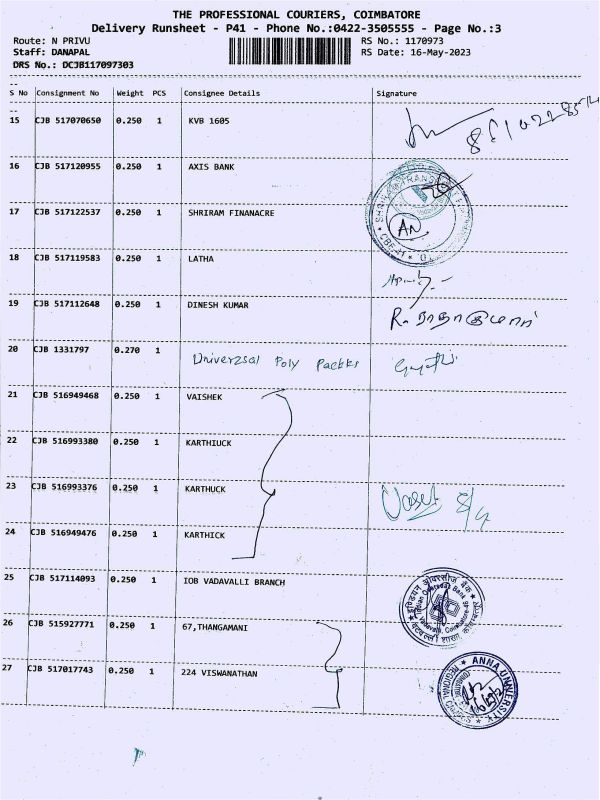 THE PROFESSIONAL COURIERS, COIMBATORE
Delivery Runsheet - P41 - Phone No.:0422-3505555 - Page No.:3
Route: N PRIVU RS No.: 1170973
Staff: DANAPAL RS Date: 16-May-2023
DRS No.: DCJB117097303
S No Consignment No Weight PCS Consignee Details Signature
15 CJB 517070650 0.250 1 KVB 1605
16 CJB 517120955 0.250 1 AXIS BANK
17 CJB 517122537 0.250 1 SHRIRAM FINANACRE
AN
18 CJB 517119583 0.250 1 LATHA
19 CJB 517112648 0.250 1 DINESH KUMAR
20 CJB 1331797 0.270 1 Universal Poly Packks
21 CJB 516949468 0.250 1 VAISHEK
22 CJB 516993380 0.250 1 KARTHIUCK
23 CJB 516993376 0.250 1 KARTHUCK
24 CJB 516949476 0.250 1 KARTHICK
25 CJB 517114093 0.250 1 IOB VADAVALLI BRANCH
इण्डियन ओवरसीज बैंक
Indian Overseas Bank
26 CJB 515927771 0.250 1 67,THANGAMANI
27 CJB 517017743 0.250 1 224 VISWANATHAN
ANNA UNIVERSITY
REGIONAL CAMPUS